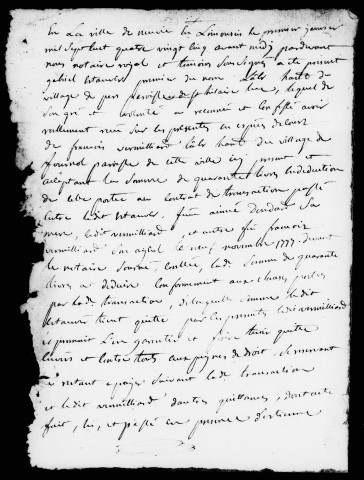 En La ville de neuvic En Limousin le premier janvier
mil Sept Cent quatre vingt cinq avant midy pardevant
nous notaire royal et temoins Soussignés a eté present
gabriel premier du nom habt du
village de paroisse de St hilaire luc, lequel de
Son gré et volonté a reconnu et Confessé avoir
reellement recu Sur les presentes en espèces de Cours
de francois vermilliard habt du village de
paroisse de cette ville icy present et
acceptant la Somme de quarante livres En deduction
de Celle portée au Contrat de transaction passé
Entre ledit feue Sa
mere, ledit vermilliard, et autre feu francois
vermilliard le neuf novembre 1777 devant
le notaire Soussigné lade Somme de quarante
livres a deduire Conformement aux Clauses
par lade transaction de laquelle Somme ledit
tient quitte par les presentes led vermilliard
et promet L'en garantir et faire tenir quitte
Envers et Contre tous aux peynes de Droit, Se reservant
le restant a payer Suivant lade transaction
et ledit vermilliard d'autres quittances, dont acte
fait, lu, et passé en presence d'etienne